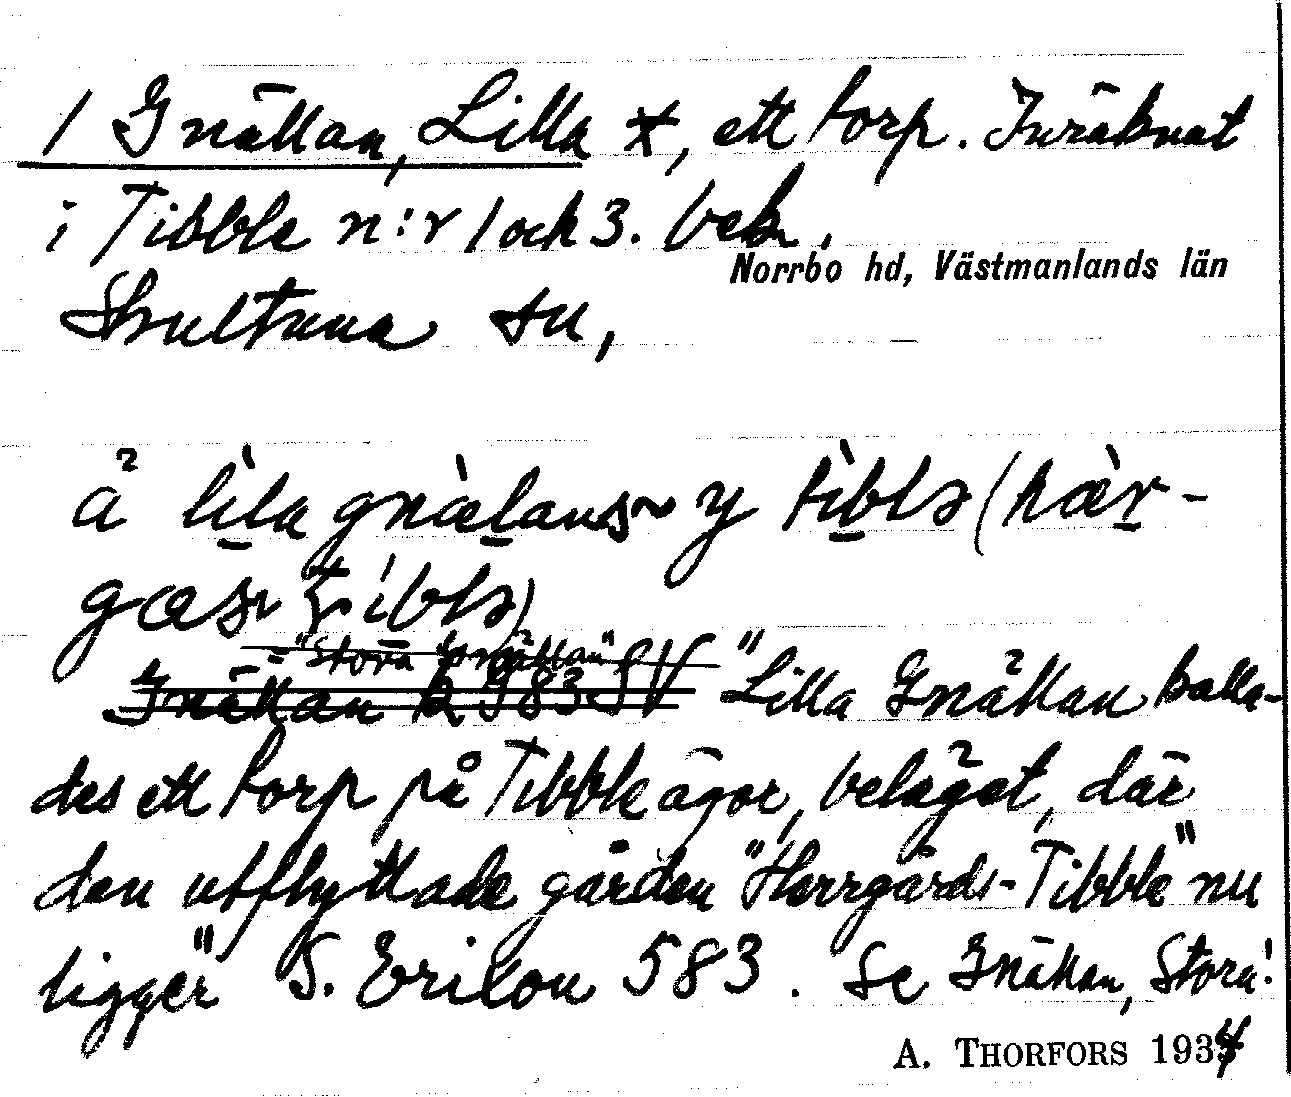 1 Gnällan, Lilla +, ett torp. Inräknat
i Tibble n:r 1 och 3. bek.
Norrbo hd, Västmanlands län
Skultuna sn,
å lila gnælans~ y tiblə (hær-
gæs~ tiblə)
="Stora Gnällan"
Gnällan k 983 SV "Lilla Gnällan kalla-
des ett torp på Tibble ägor, beläget, där
den utflyttade gården "Herrgårds-Tibble" nu
ligger" S. Erixon 583. Se Gnällan, Stora!
A. THORFORS 1934